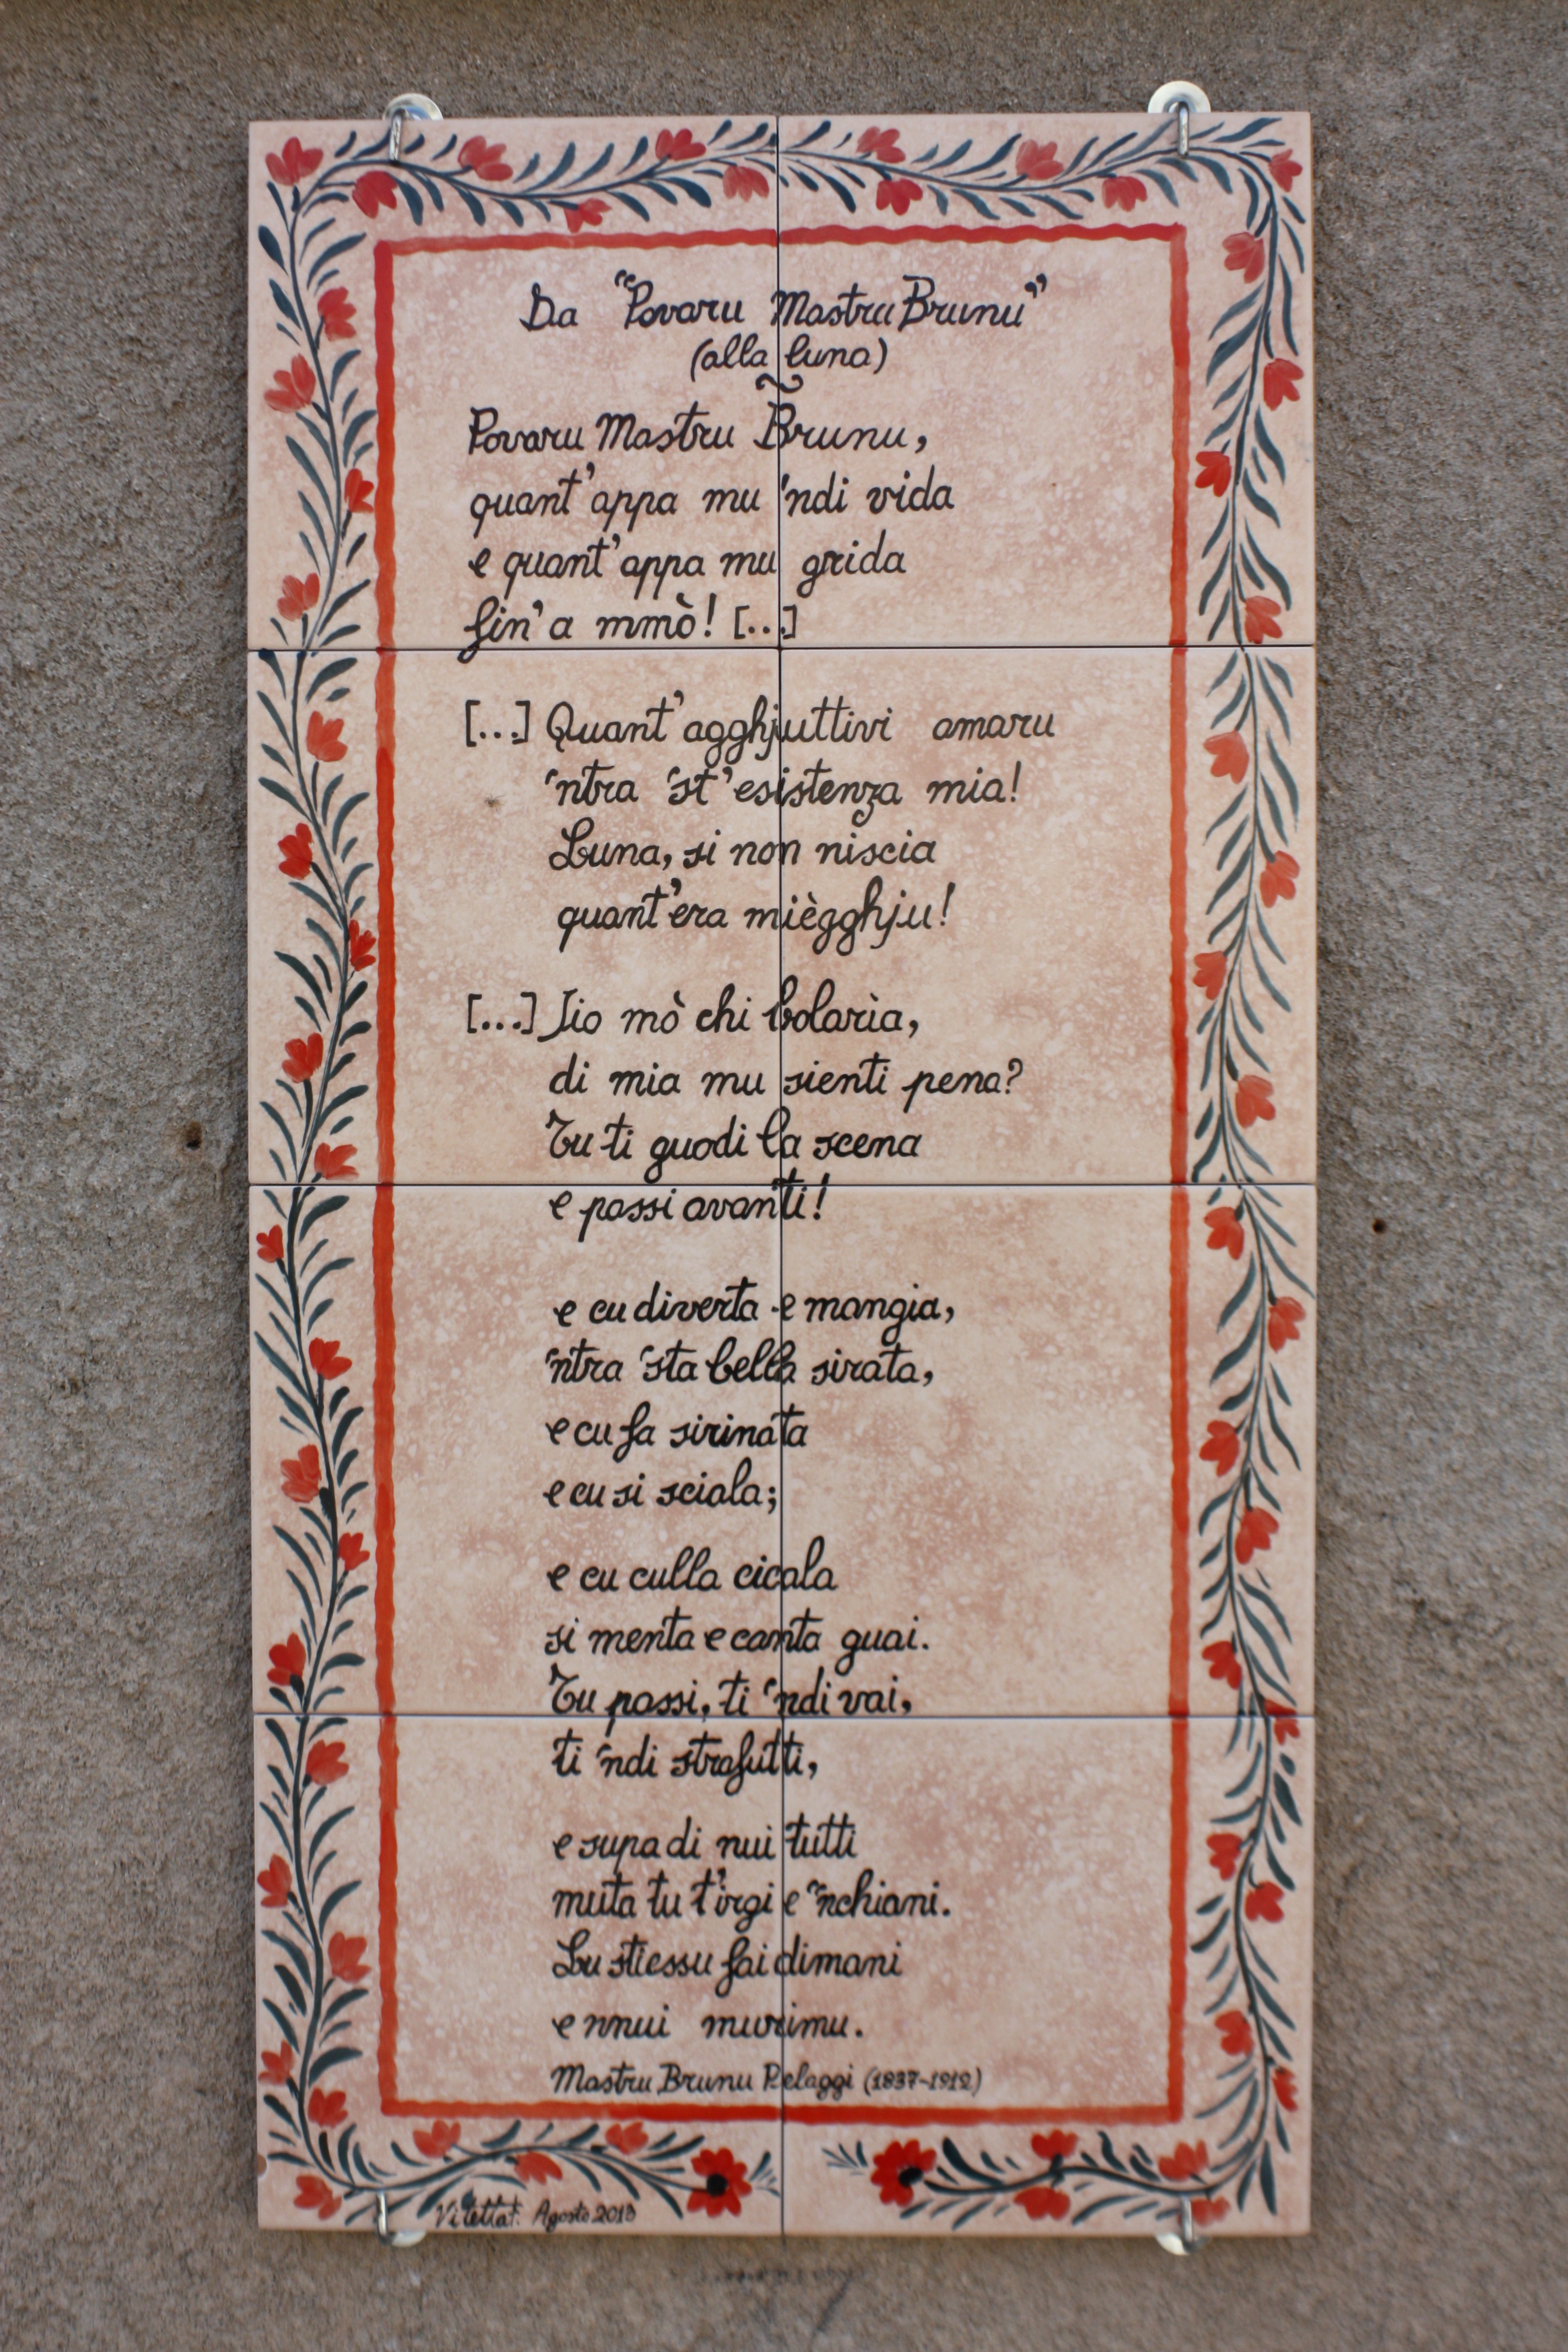 Da "Povaru Mastru Brunu"
(alla luna)
~
Povaru Mastru Brunu,
quant'appa mu 'ndi vida
e quant'appa mu grida
fin'a mmò! [...]
[...] Quant'agghjuttivi amaru
'ntra 'st'esistenza mia!
Luna, si non niscia
quant'era miègghju!
[...] Jio mò chi bolarìa,
di mia mu sienti pena?
Tu ti guodi la scena
e passi avanti!
e cu diverta e mangia,
'ntra 'sta bella sirata,
e cu fa sirinata
e cu si sciala;
e cu culla cicala
si menta e canta guai.
Tu passi, ti 'ndi vai,
ti 'ndi strafutti,
e supa di nui tutti
muta tu t'irgi e 'nchiani.
Lu stiessu fai dimani
e nnui murimu.
Mastru Brunu Pelaggi (1837-1912)
Agosto 2013